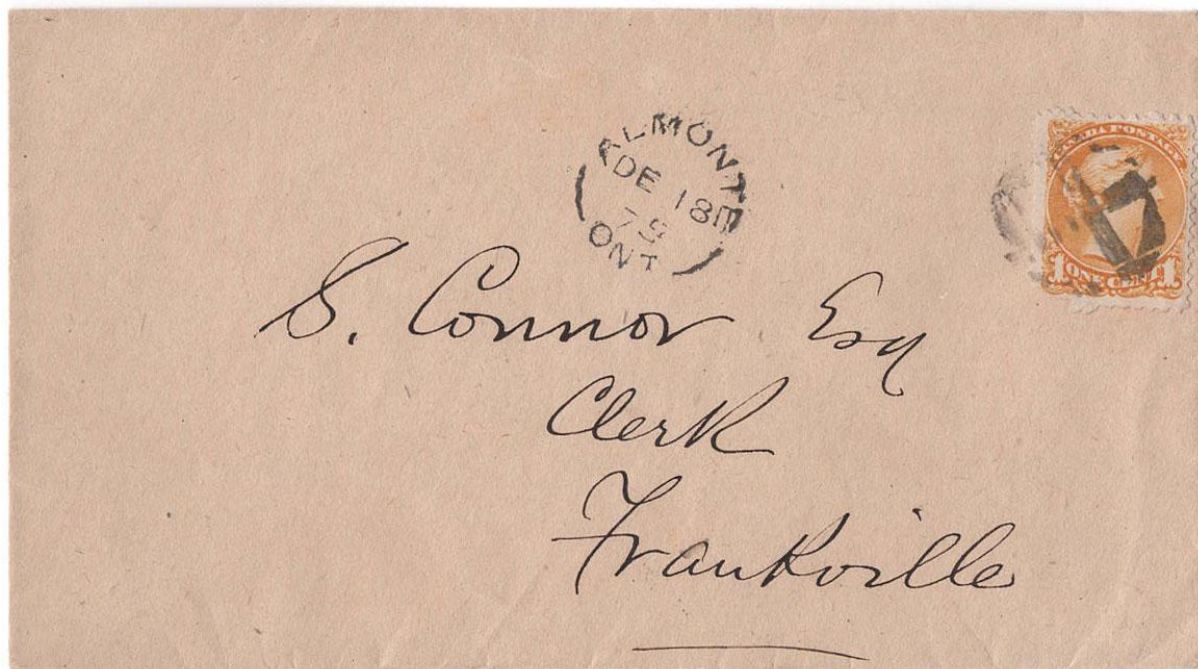 ALMONTE
DE 18
79
ONT
CANADA POSTAGE
1 ONE CENT 1
S. Connor Esq
Clerk
Frankville